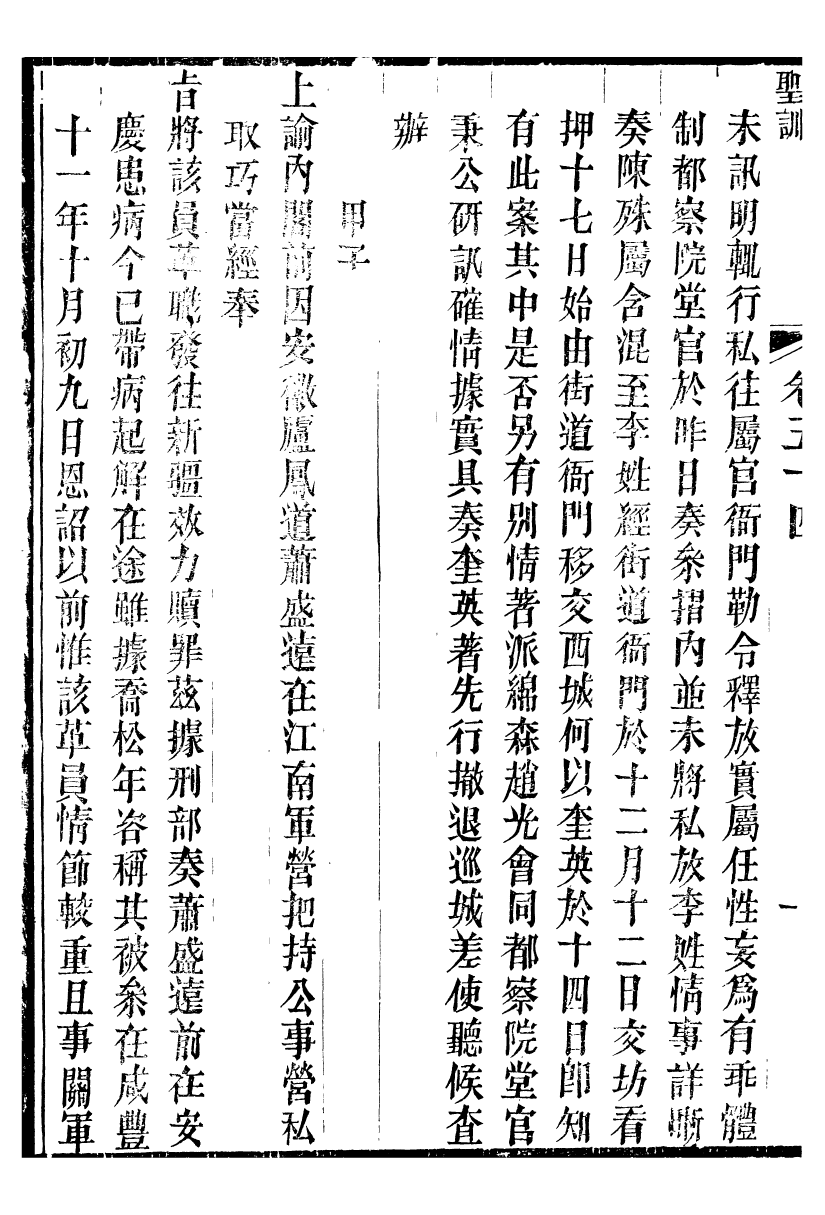 聖訓
卷五十四
一
未訊明輒行私往屬官衙門勒令釋放實屬任性妄為有乖體
制都察院堂官於昨日奏叅摺內並未將私放李姓情事詳晰
奏陳殊屬含混至李姓經街道衙門於十二月十二日交坊看
押十七日始由街道衙門移交西城何以奎英於十四日卽知
有此案其中是否另有別情著派綿森趙光會同都察院堂官
秉公研訊確情據實具奏奎英著先行撤退巡城差使聽候查
辦
甲子
上諭內閣前因安徽廬鳳道蕭盛遠在江南軍營把持公事營私
取巧當經奉
旨將該員革職發往新疆效力贖罪茲據刑部奏蕭盛遠前在安
慶患病今已帶病起解在途雖據喬松年咨稱其被叅在咸豐
十一年十月初九日恩詔以前惟該革員情節較重且事關軍